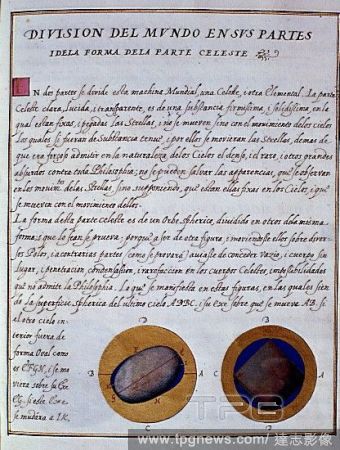 DIVISION DEL MVNDO EN SVS PARTES
I DE LA FORMA DE LA PARTE CELESTE
EN dos partes se divide esta machina Mundial, una Celeste, i otra Elemental. La parte
Celeste clara, Lucida, i transparente, es de una substancia firmissima, i solidissima, en la
qual estan fixas, i pegadas las Estrellas, i no se mueven sino con el movimiento de los cielos
los quales si fueran de Substancia tenue, i por ellos se movieran las Estrellas, demas de
que era forçoso admitir en la naturaleza de los Cielos el denso, i el raro, i otros grandes
absurdos contra toda Philosophia; no se pueden salvar las aparencias, que se observan
en los movim. de las Estrellas, sino suponiendo, que estan ellas fixas en los Cielos, i que
se mueven con el movimiento dellos.
La forma desta parte celeste es de un Orbe Spherico, dividido en otros de la misma
forma; i que lo sean se prueva; porque a ser de otra figura, i moviendose ellos sobre diver-
sos Polos, i a contrarias partes, como se provará; auiase de conceder vazio, i cuerpo sin
lugar, i penetracion, condensacion, i rarefaccion en los cuerpos Celestes, impossibilidades
que no admite la Philosophia. Lo que se manifiesta en estas figuras, en las quales sien-
do la superficie spherica del ultimo cielo ADBC, i su Exe sobre que se mueve AB. si
el otro cielo in-
terior fuera de
forma Oval como
es EFGH, i se mo
viera sobre su Exe
EG, si este Exe
se mudara a IK,
D
A
B
C
D
A
B
C
TPG
www.tpgnews.com / 達志影像